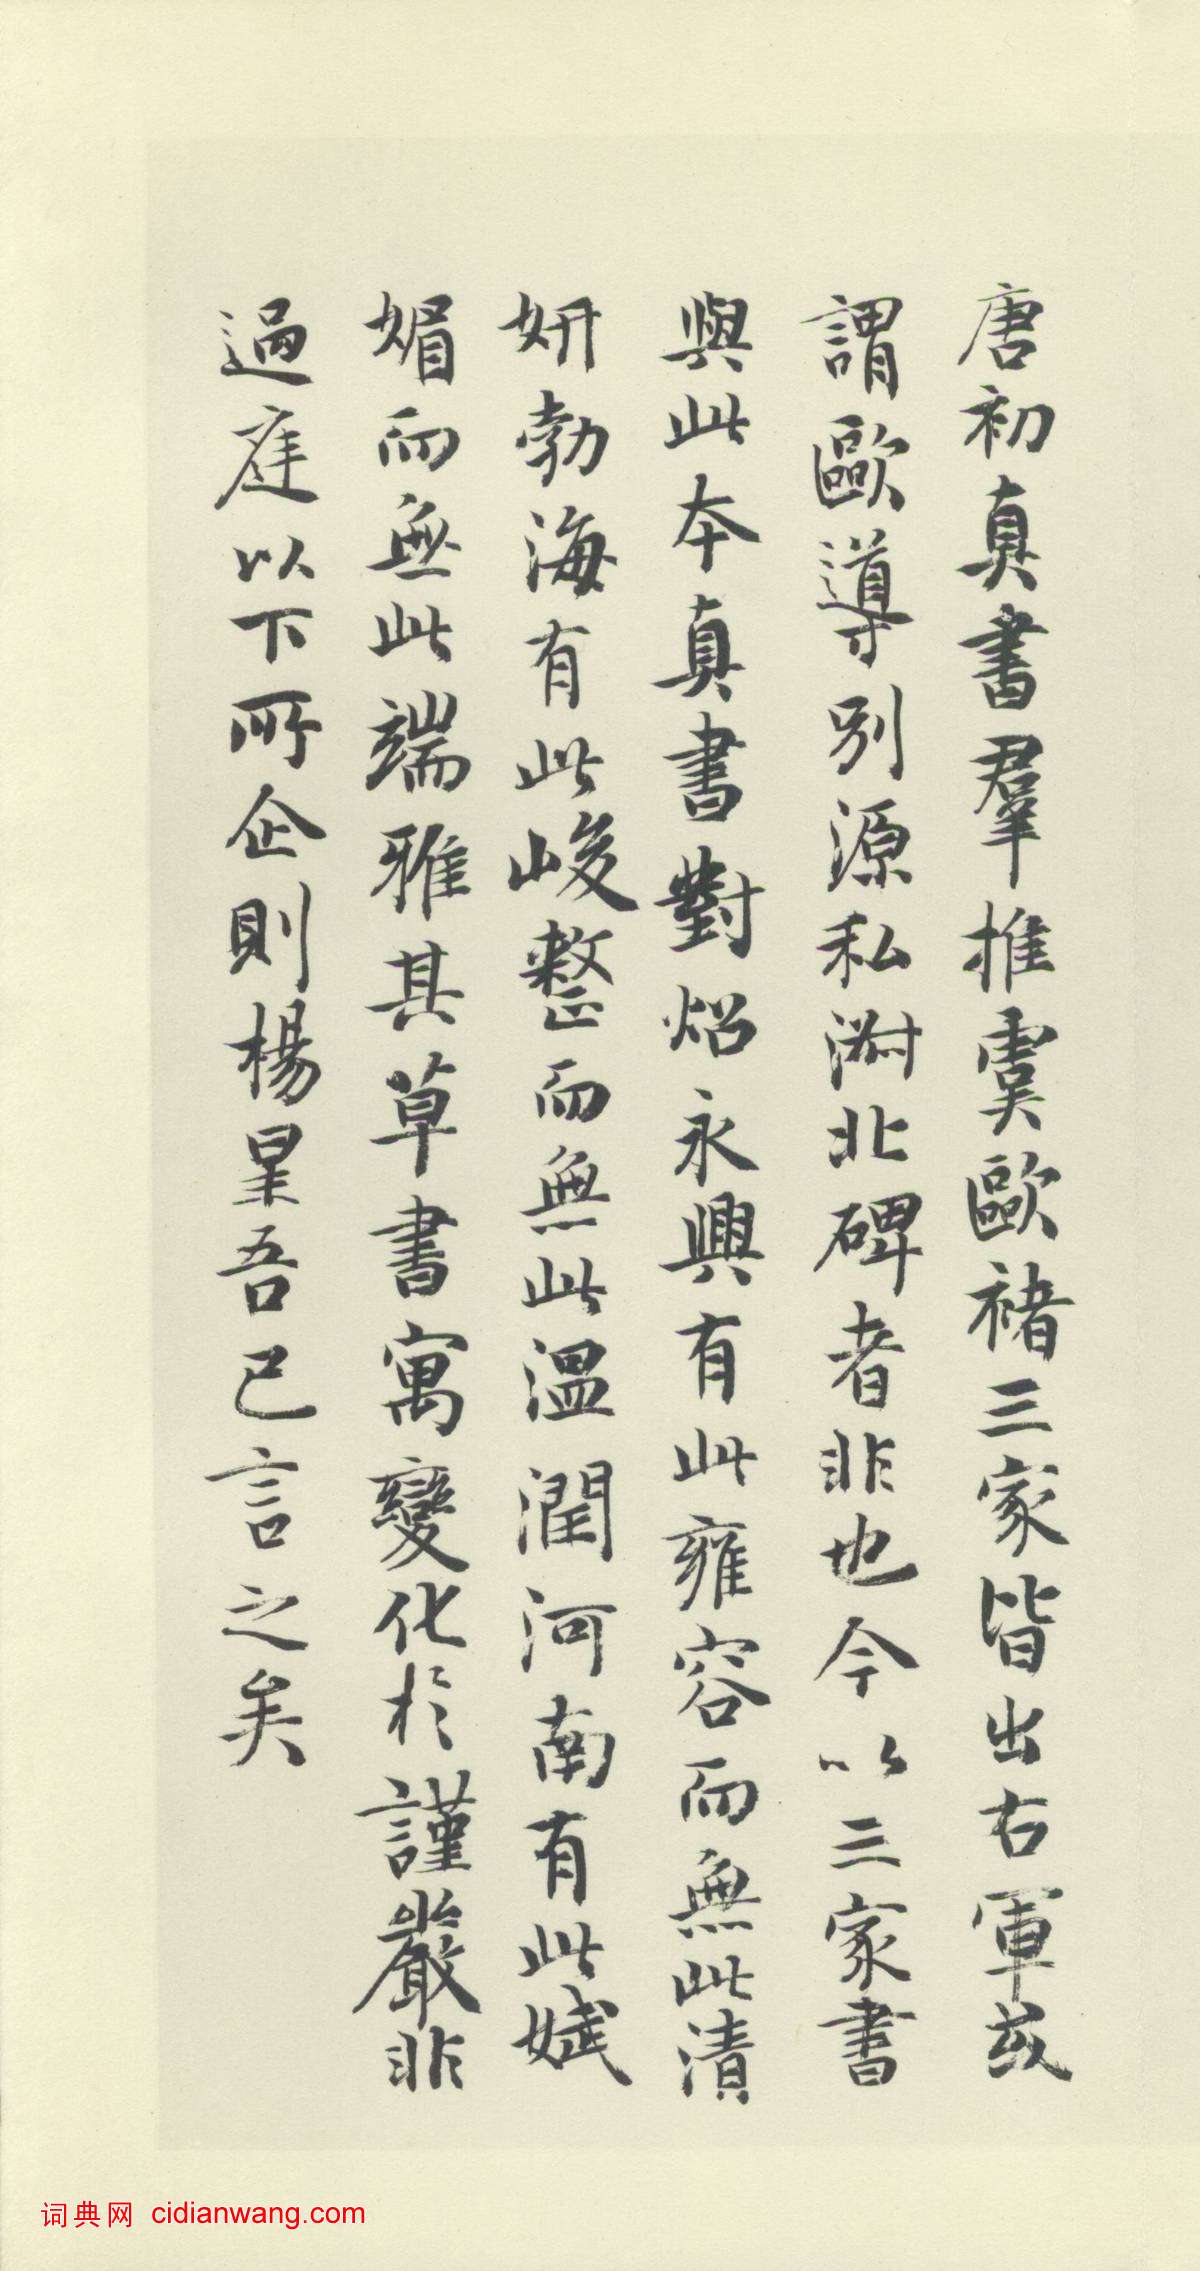 唐初真書羣推虞歐褚三家皆出右軍或
謂歐導別源私淑北碑者非也今以三家書
與此本真書對炤永興有此雍容而無此清
妍勃海有此峻整而無此溫潤河南有此娬
媚而無此端雅其草書寓變化於謹嚴非
過庭以下所企則楊星吾已言之矣
词典网 cidianwang.com